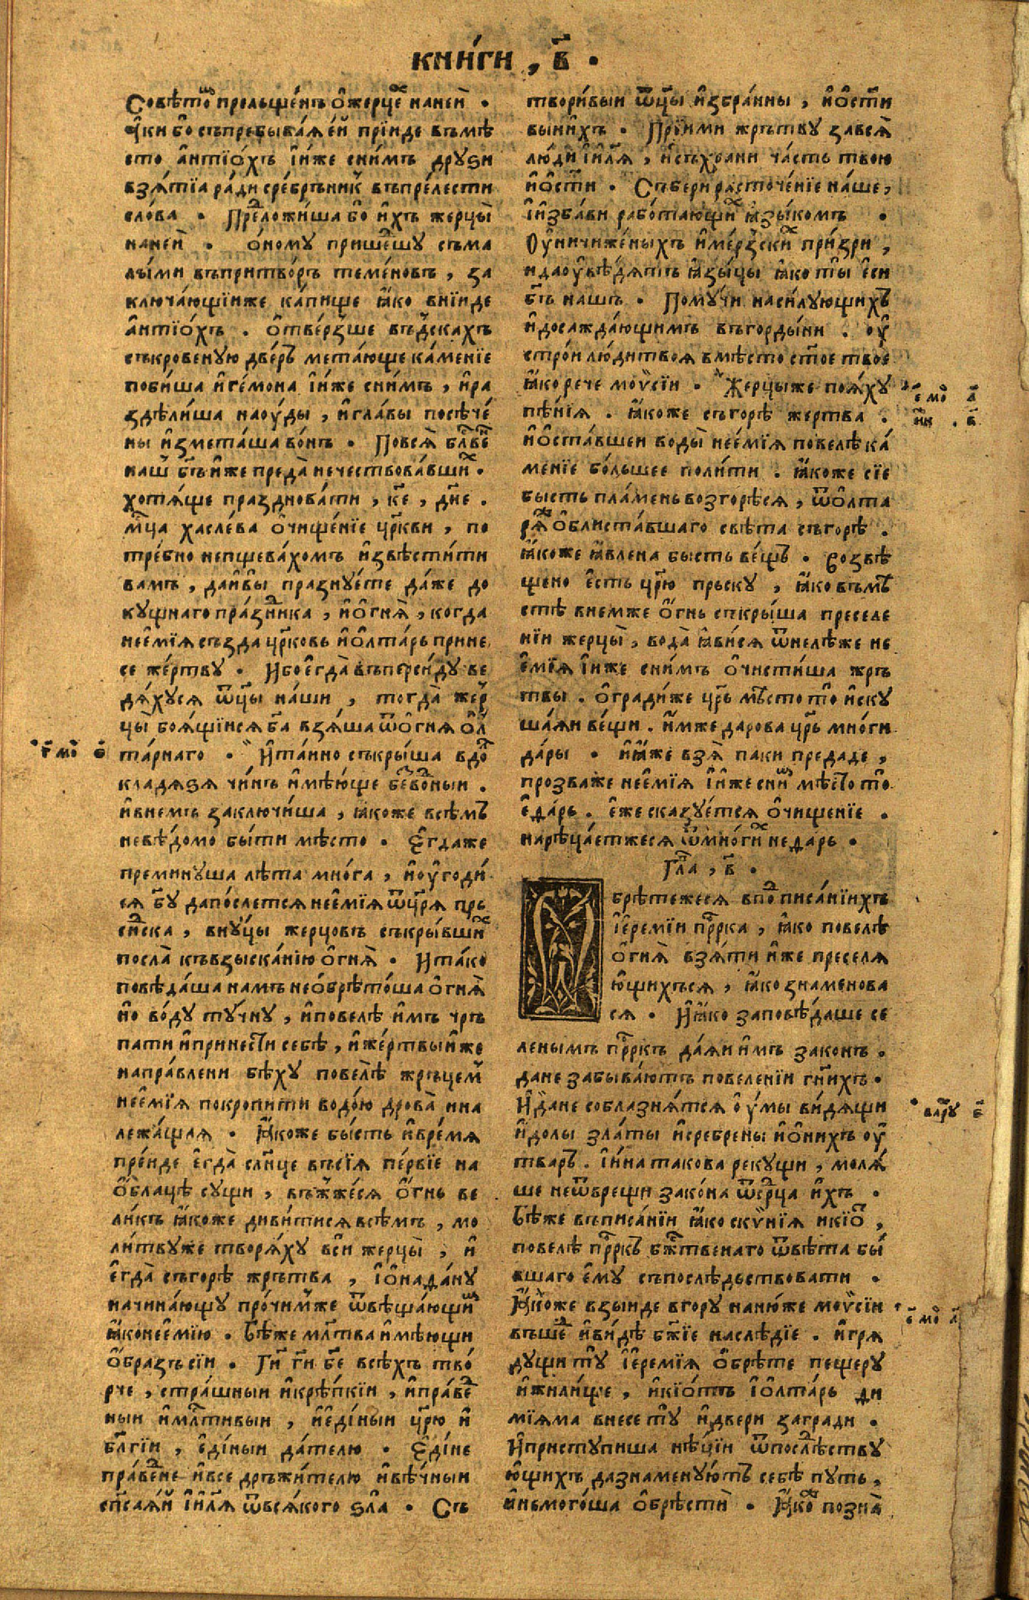 книги, в҃ .
Совѣтⷪ прольщенъ ѡ҆ жерцеⷯ нанеи .
а҆ки бо съпребываѧ є҆й прїиде въмѣ
сто антїохъ и҆ иже снимъ дрꙋѕи
взѧтїа ради сребръникъ въпрелести
слова . Преⷣложиша бо и҆хъ жерцы
нанеи . ономꙋ пришеⷣшꙋ съма
лыми въпритворъ теменовъ , за
ключающїиже капище ꙗ҆ко внїиде
антїохъ . ѿверзше въдскахъ
съкровеную дверь метающе каменїе
побиша игемона и҆ иже снимъ , и҆ ра
здѣлиша наоуды , и҆ главы посѣче
ны и҆зметаша вонъ . Повсѧ блⷭ҇венъ
нашъ бг҃ъ иже преда нечествовавшиⷯ .
хотѧще праздновати , к҃е , дн҃е .
мц҃а хаслева ѡ҆чищенїе цр҃кви , по
требно непщевахомъ и҆звѣстити
вамъ , даивы празнꙋете даже до
кꙋщнаго празⷣника , и҆ огнѧ , когда
неемїѧ създа цр҃ковь и҆ ѡлтарь прине
се жертвꙋ . Ибо є҆гда въперсидꙋ ве
дѧхꙋсѧ ѿц҃ы наши , тогда жер
цы боѧщїисѧ бг҃а взѧша ѿ огнѧ ол
тарнаго . И҆ таино съкрыша вдоⷧ
кладѧѕѧ чинъ и҆мѣюще безⷡодныи .
и҆ внемъ заключиша , ꙗ҆коже всѣмъ
невѣдомо быти мѣсто . Єгдаже
преминꙋша лѣта многа , и҆ оугоди
сѧ бг҃ꙋ дапослетсѧ неемїѧ ѿ цр҃ѧ пръ
сиⷣска , внꙋцы жерцовъ съкрывшиⷯ
посла къвзысканїю огнѧ . И тако
повѣдаша намъ необрѣтоша огнѧ
но водꙋ тꙋчнꙋ , и҆ повелѣ и҆мъ чръ
пати и҆ принести себѣ , и҆ жертвы и҆же
направлени бѣхꙋ повелѣ жръцемъ
неемїѧ покропити водою дрова ина
лежащаѧ . Ꙗ҆коже бысть и҆ времѧ
преиде є҆гда слн҃це въсїѧ первїе на
ѡблацѣ сꙋщи , въжжесѧ огнь ве
ликъ ꙗ҆коже дивитисѧ всѣмъ , мо
литвꙋже творѧхꙋ вси жерцы , и҆
є҆гда съгорѣ жрътва , і҆онаданꙋ
начинающꙋ прочимже ѿвѣщающиⷨ
ꙗ҆ко неемїю . Бѣже мл҃тва и҆мѣющи
ѡбразъ сїи . Гⷭ҇и гⷭ҇и бж҃е всѣхъ тво
рче , страшныи и҆ крѣпкїи , и҆ правеⷣ
ныи и҆ млⷭ҇тивыи , и҆ є҆диныи цр҃ю и҆
блг҃їи , є҆диныи дателю . Єдине
праведне и҆ все дръжителю и҆ вѣчныи
сп҃саѧи і҆ил҃ѧ ѿ всѧкого ѕла . Съ
творивыи ѿц҃ы и҆збранны , и҆ ѡст҃и
выи ихъ . Прїими жрътвꙋ завсѧ
люди і҆ил҃ѧ , и҆ съхрани часть твою
и҆ ѡст҃и . Събери расточенїе наше ,
и҆ и҆збави работающиⷯ ꙗ҆зыкомъ .
Оуничиженыхъ и҆ мерзскиⷯ призри ,
и҆ да оувѣдѧтъ ꙗ҆зыцы ꙗ҆ко ты є҆си
бг҃ъ нашъ . Помꙋчи насилꙋющихъ
и҆ досаждающимъ въгордыни . оу҆
строи люди твоѧ вмѣсто ст҃ое твое
ꙗ҆ко рече моѵсїи . Жерцы же поѧхꙋ
пѣнїѧ . ꙗ҆коже съгорѣ жертва .
и҆ ѡставшеи воды неемїѧ повелѣ ка
менїе большее полити . ꙗ҆коже сїе
бысть пламень возгорѣсѧ , ѿ ѡлта
рѧ ѡблиставшаго свѣта съгорѣ .
ꙗ҆коже ꙗ҆влена бысть вещь . розвѣ
щено єсть цр҃ю прьскꙋ , ꙗ҆ко въмѣ
стѣ внемже огнь съкрыша преселе
нїи жерцы , вода ꙗ҆висѧ ѿнелѣже не
ємїѧ і҆ иже снимъ ѡчистиша жръ
твы . ѡгради же цр҃ь мѣсто то и҆ скꙋ
шаѧи вещи . имже дарова цр҃ь многи
дары . и҆ ꙗ҆же взѧ паки предаде ,
прозваже неемїѧ и҆ иже сниⷨ мѣсто то
єдарь . еже сказꙋетсѧ ѡчищенїе .
нарѣцаетжесѧ ѿ многиⷯ недарь .
Глⷡа , в҃ .
Обрѣтежесѧ впоⷣписанїихъ
і҆еремїи прⷪ҇рка , ꙗ҆ко повелѣ
огнѧ взѧти иже преселѧ
ющихъсѧ , ꙗ҆ко знаменова
сѧ . И ꙗ҆ко заповѣдаше се
леныимъ прⷪ҇ркъ даѧи имъ законъ .
дане забываютъ повеленїи гнⷭ҇ихъ .
И дане соблазнѧтсѧ оумы видѧщи
идолы златы и҆ сребрены и҆ ѡ нихъ оу
тварь . і҆ ина такова рекꙋщи , молѧ
ше не ѿврещи закона ѿ срⷣца ихъ .
Бѣже въписанїи ꙗ҆ко скинїѧ и кїоⷮ ,
повелѣ прⷪ҇ркъ бжⷭ҇твенаго ѿвѣта бы
вшаго ємꙋ съпослѣдьствовати .
Ꙗ҆коже взыиде вгорꙋ нанюже моѵсїи
въшеⷣ и҆ видѣ бж҃їе наслѣдїе . и҆ грѧ
дꙋщи тꙋ і҆еремїѧ ѡбрѣте пещерꙋ
и҆ жилище , и҆ кїотъ і҆ олтарь ди
мїѧма внесе тꙋ и҆ двери загради .
И҆ пристꙋпиша нѣцїи ѿ послѣствꙋ
ющихъ да знаменꙋютъ себѣ пꙋть ,
и҆ немогоша ѡбрѣсти . Ꙗ҆коⷤ позна
г҃ моⷡ ѕ҃
є҃ моⷡ а҃
варꙋⷯ ѕ҃